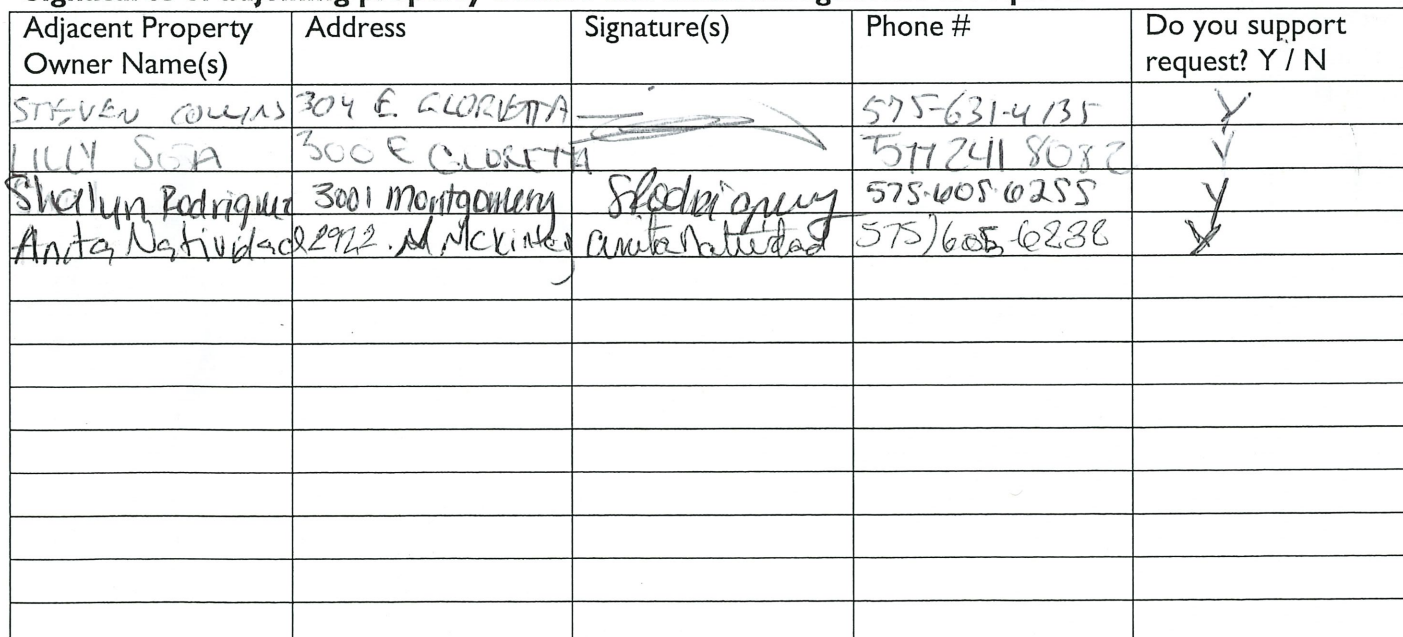 Adjacent Property Owner Name(s) Address Signature(s) Phone # Do you support request? Y / N
STEVEN COLLINS 304 E. GLORIETTA 575-631-4135 Y
LILLY SOTA 300 E GLORETTA 241 8082 Y
Shalyn Rodriguez 3001 Montgomery SRodriguez 575-605-6255 Y
Anita Natividad 2922 N McKinley Anita Natividad 575) 605-6238 Y